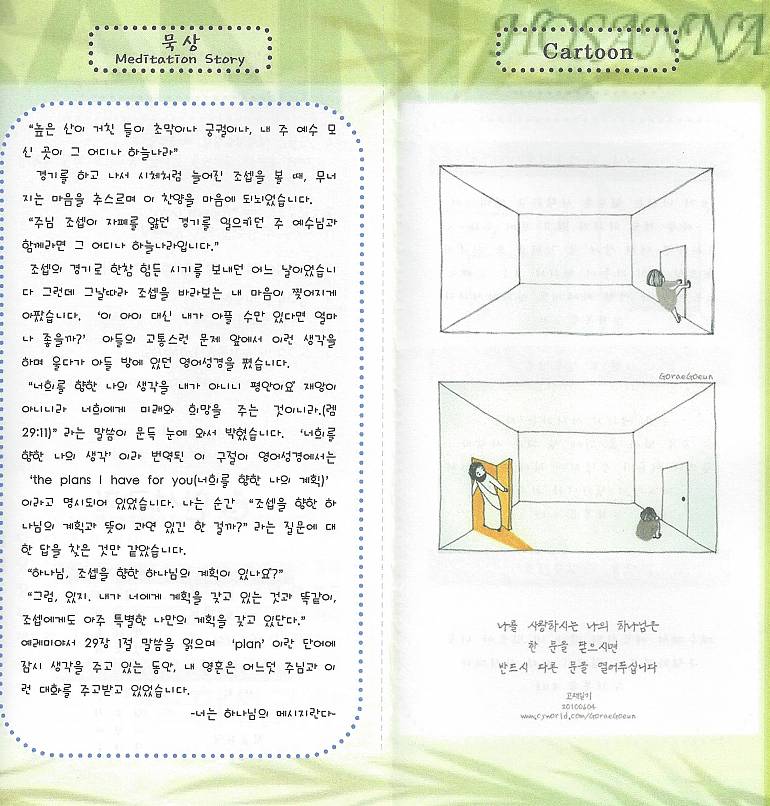 묵상
Meditation Story
"높은 산이 거친 들이 초막이나 궁궐이나, 내 주 예수 모
신 곳이 그 어디나 하늘나라"
경기를 하고 나서 시체처럼 늘어진 조셉을 볼 때, 무너
지는 마음을 추스르며 이 찬양을 마음에 되뇌었습니다.
"주님 조셉이 자폐를 앓던 경기를 일으키던 주 예수님과
함께라면 그 어디나 하늘나라입니다."
조셉의 경기로 한참 힘든 시기를 보내던 어느 날이었습니
다 그런데 그날따라 조셉을 바라보는 내 마음이 찢어지게
아팠습니다. '이 아이 대신 내가 아플 수만 있다면 얼마
나 좋을까?' 아들의 고통스런 문제 앞에서 이런 생각을
하며 울다가 아들 방에 있던 영어성경을 폈습니다.
"너희를 향한 나의 생각을 내가 아니니 평안이요 재앙이
아니니라 너희에게 미래와 희망을 주는 것이니라.(렘
29:11)" 라는 말씀이 문득 눈에 와서 박혔습니다. '너희를
향한 나의 생각' 이라 번역된 이 구절이 영어성경에서는
'the plans I have for you(너희를 향한 나의 계획)'
이라고 명시되어 있었습니다. 나는 순간 "조셉을 향한 하
나님의 계획과 뜻이 과연 있긴 한 걸까?" 라는 질문에 대
한 답을 찾은 것만 같았습니다.
"하나님, 조셉을 향한 하나님의 계획이 있나요?"
"그럼, 있지. 내가 너에게 계획을 갖고 있는 것과 똑같이,
조셉에게도 아주 특별한 나만의 계획을 갖고 있단다."
예레미야서 29장 1절 말씀을 읽으며 'plan' 이란 단어에
잠시 생각을 주고 있는 동안, 내 영혼은 어느덧 주님과 이
런 대화를 주고받고 있었습니다.
-너는 하나님의 메시지란다-
HOSANNA
Cartoon
GoraeGoeun
나를 사랑하시는 나의 하나님은
한 문을 닫으시면
반드시 다른 문을 열어두십니다
고래일기
20100604
www.cyworld.com/GoraeGoeun